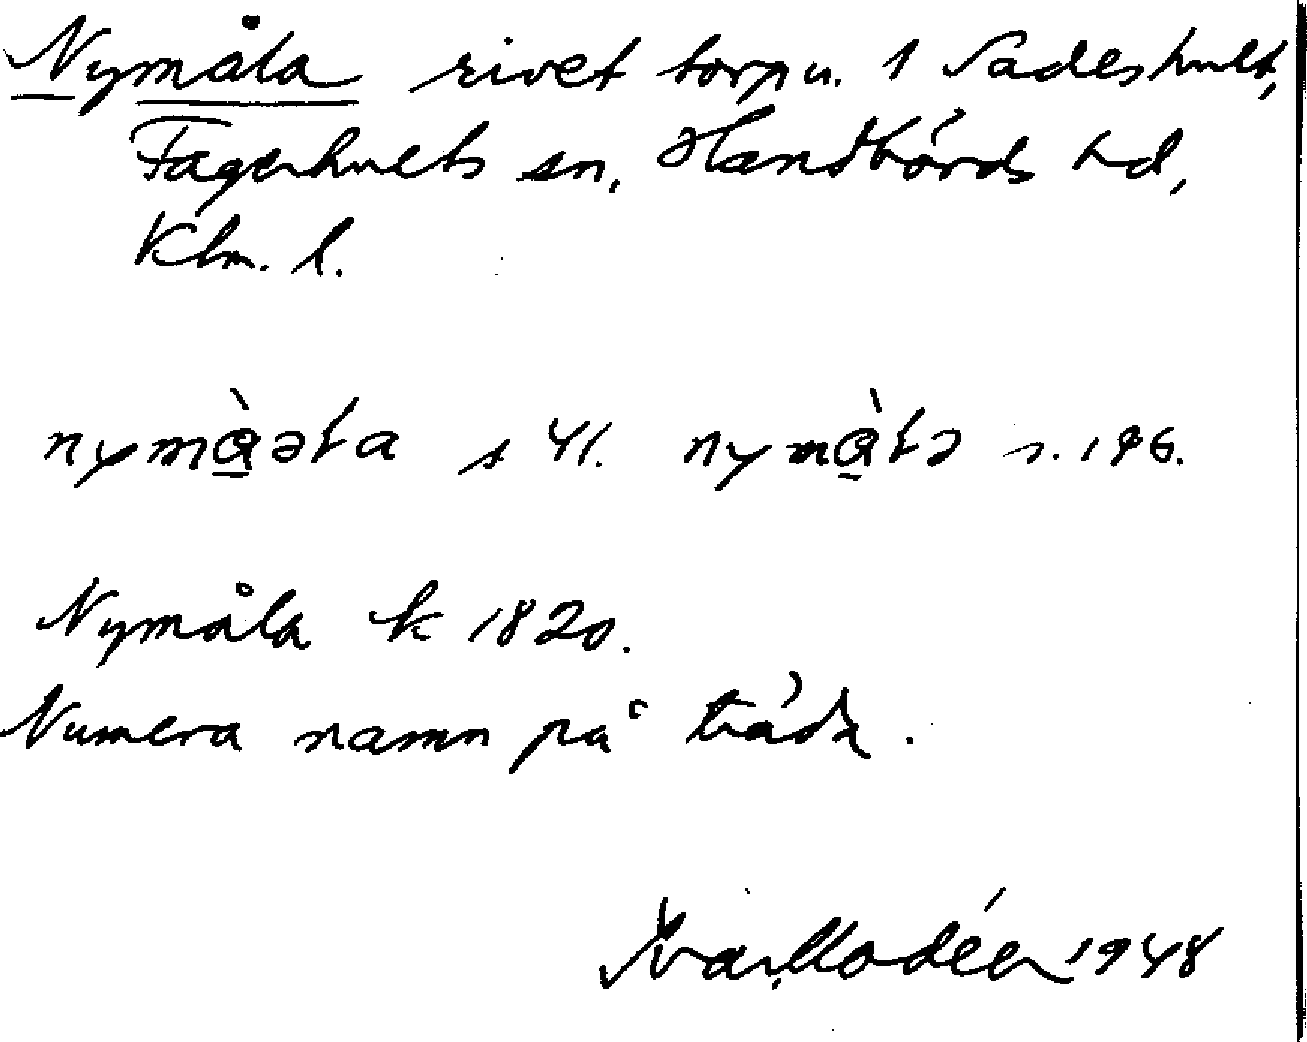 Nymåla rivet torp u. 1 Sadeshult,
Fagerhults sn, Handbörds hd,
Klm. l.
nymὰəta s 41. nymὰtə s. 196.
Nymåla k 1820.
Numera namn på träda.
Ivar Modéer 1948